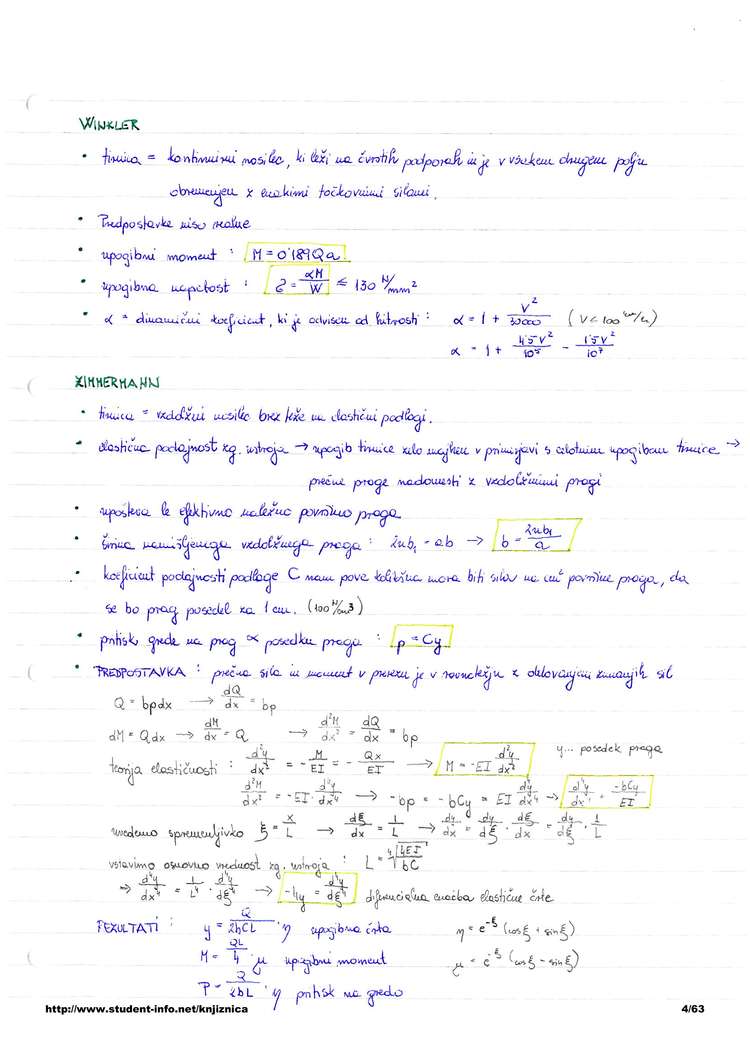 WINKLER
• tirnica = kontinuirni nosilec, ki leži na čvrstih podporah in je v vsakem drugem polju
obremenjen z enakimi točkovnimi silami.
• Predpostavke niso realne
• upogibni moment : M = 0'189Qa
• upogibna napetost : σ = αM/W ≤ 130 N/mm²
• α = dinamični koeficient, ki je odvisen od hitrosti : α = 1 + V²/30000 (V < 100 km/h)
α = 1 + 4'5V²/10⁵ - 1'5V²/10⁷
ZIMMERMANN
• tirnica = vzdolžni nosilec brez teže na elastični podlagi.
• elastična podajnost zg. ustroja → upogib tirnice zelo majhen v primerjavi s celotnim upogibom tirnice →
prečne prage nadomesti z vzdolžnimi pragi
• upošteva le efektivno naležno površino praga
• širina namišljenega vzdolžnega praga : 2ub₁ = ab → b = 2ub₁/a
• koeficient podajnosti podlage C nam pove kolikšna mora biti sila na cm² površine praga, da
se bo prag posedel za 1 cm. (100 N/cm³)
• pritisk grede na prag ∝ posedku praga : p = Cy
• PREDPOSTAVKA : prečna sila in moment v prerezu je v ravnotežju z delovanjem zunanjih sil
Q = bpdx → dQ/dx = bp
dM = Qdx → dM/dx = Q → d²M/dx² = dQ/dx = bp
teorija elastičnosti : d²y/dx² = -M/EI = -Qx/EI → M = -EI d²y/dx² y... posedek praga
d²M/dx² = -EI · d⁴y/dx⁴ → -bp = -bCy = EI d⁴y/dx⁴ → d⁴y/dx⁴ = -bCy/EI
uvedemo spremenljivko ξ = x/L → dξ/dx = 1/L → dy/dx = dy/dξ · dξ/dx = dy/dξ · 1/L
vstavimo osnovno vrednost zg. ustroja : L = ⁴√(4EI/bC)
⇒ d⁴y/dx⁴ = 1/L⁴ · d⁴y/dξ⁴ → -4y = d⁴y/dξ⁴ diferencialna enačba elastične črte
REZULTATI : y = Q/2bCL · η upogibna črta η = e^-ξ (cosξ + sinξ)
M = QL/4 · μ upogibni moment μ = e^-ξ (cosξ - sinξ)
P = Q/2bL · η pritisk na gredo
http://www.student-info.net/knjiznica 4/63